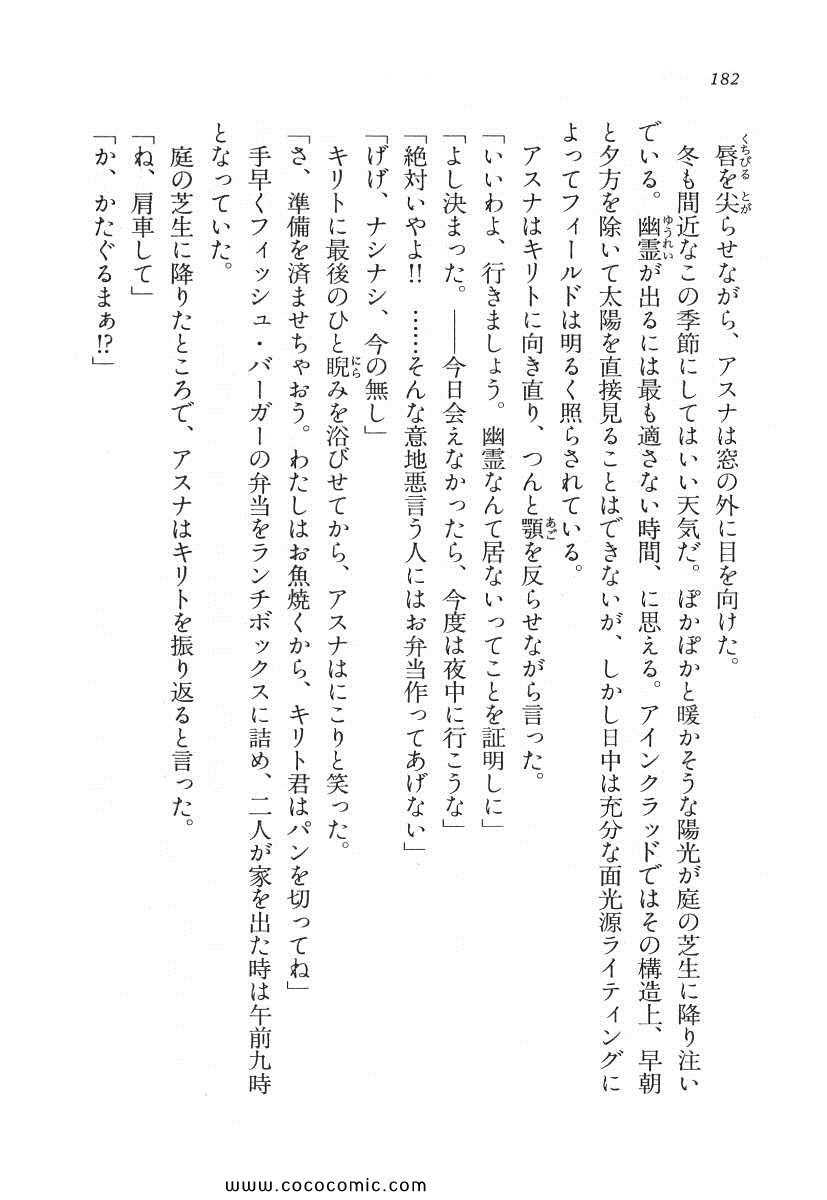 182
唇を尖らせながら、アスナは窓の外に目を向けた。
冬も間近なこの季節にしてはいい天気だ。ぽかぽかと暖かそうな陽光が庭の芝生に降り注い
でいる。幽霊が出るには最も適さない時間、に思える。アインクラッドではその構造上、早朝
と夕方を除いて太陽を直接見ることはできないが、しかし日中は充分な面光源ライティングに
よってフィールドは明るく照らされている。
アスナはキリトに向き直り、つんと顎を反らせながら言った。
「いいわよ、行きましょう。幽霊なんて居ないってことを証明しに」
「よし決まった。――今日会えなかったら、今度は夜中に行こうな」
「絶対いやよ!! ……そんな意地悪言う人にはお弁当作ってあげない」
「げげ、ナシナシ、今の無し」
キリトに最後のひと睨みを浴びせてから、アスナはにこりと笑った。
「さ、準備を済ませちゃおう。わたしはお魚焼くから、キリト君はパンを切ってね」
手早くフィッシュ・バーガーの弁当をランチボックスに詰め、二人が家を出た時は午前九時
となっていた。
庭の芝生に降りたところで、アスナはキリトを振り返ると言った。
「ね、肩車して」
「か、かたぐるまぁ!?」
www.cococomic.com